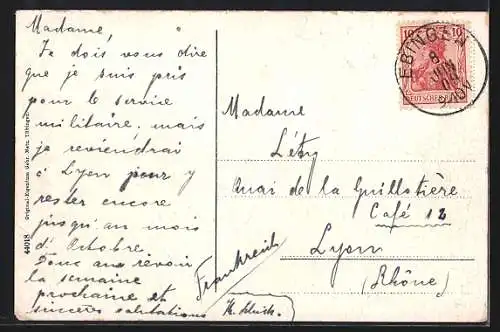 Madame,
Je dois vous dire
que je suis pris
pour le service
militaire, mais
je reviendrai
à Lyon pour y
rester encore
jusqu'au mois
d'Octobre.
Donc au revoir
la semaine
prochaine et
sincères salutations
Frankreich
Madame
Quai de la Guillotière
Café 12
Lyon
(Rhône)
EBINGEN
8
JUN
10
10
DEUTSCHES
44018